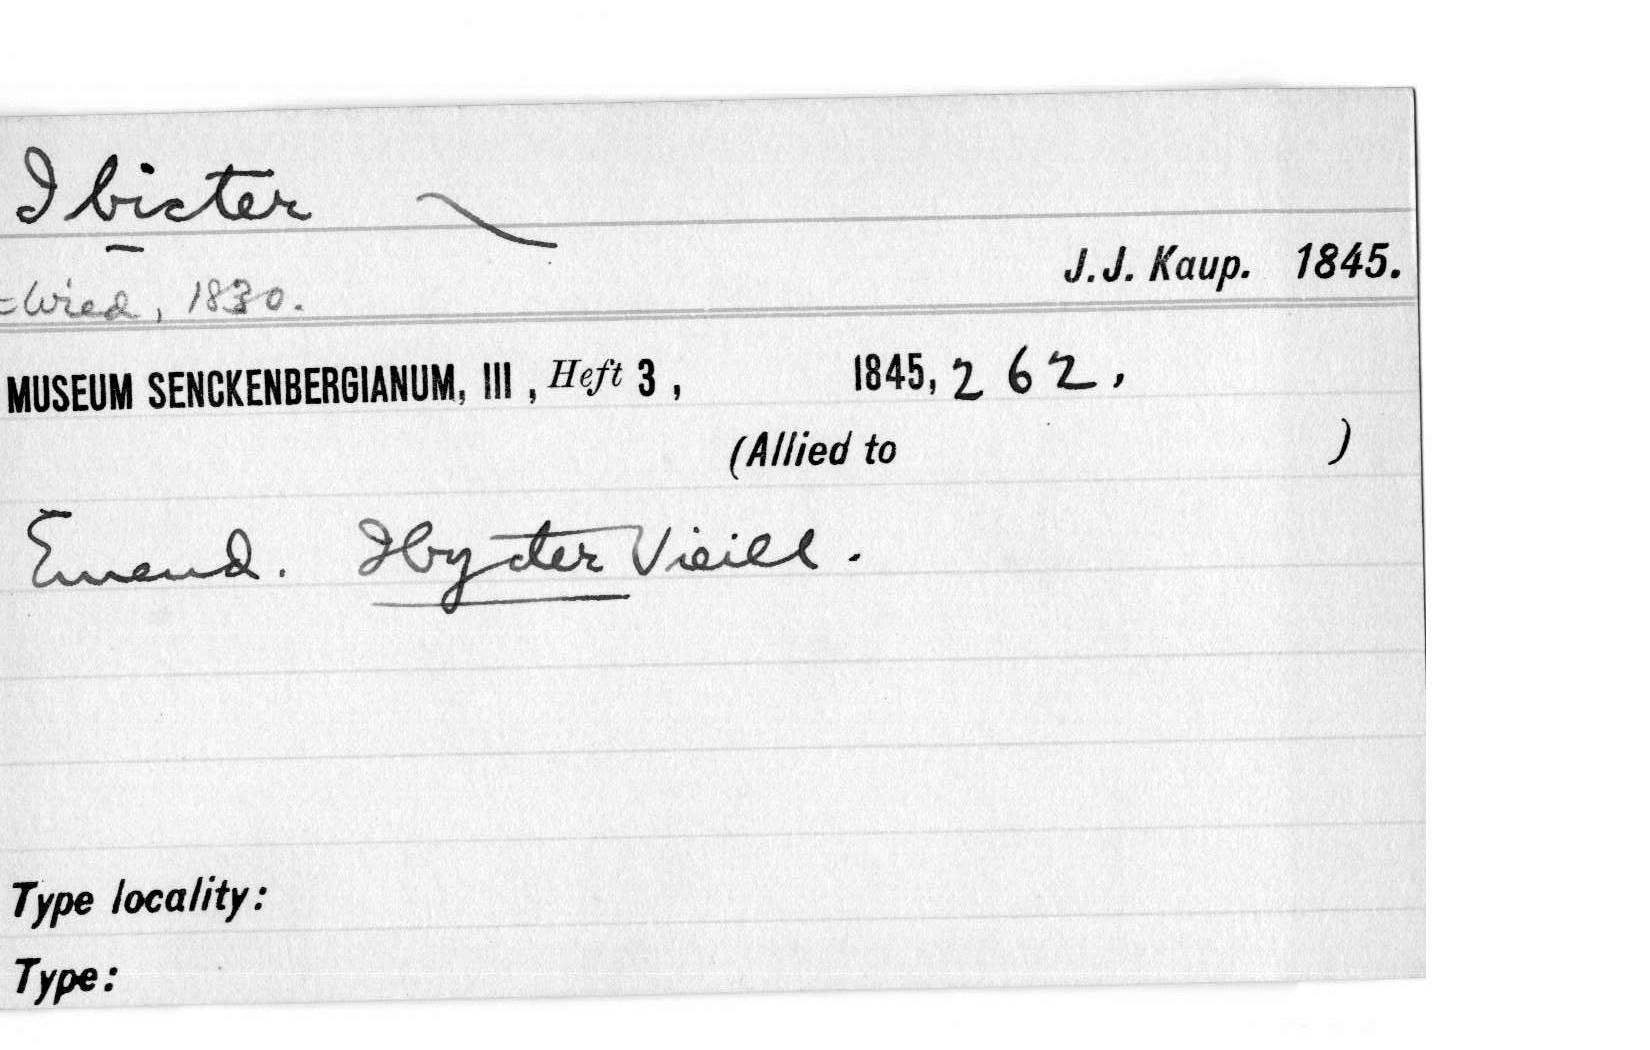 Ibicter
J. J. Kaup. 1845.
= Wied, 1830.
MUSEUM SENCKENBERGIANUM, III, Heft 3, 1845, 262,
(Allied to )
Emend. Ibycter Vieill.
Type locality:
Type: